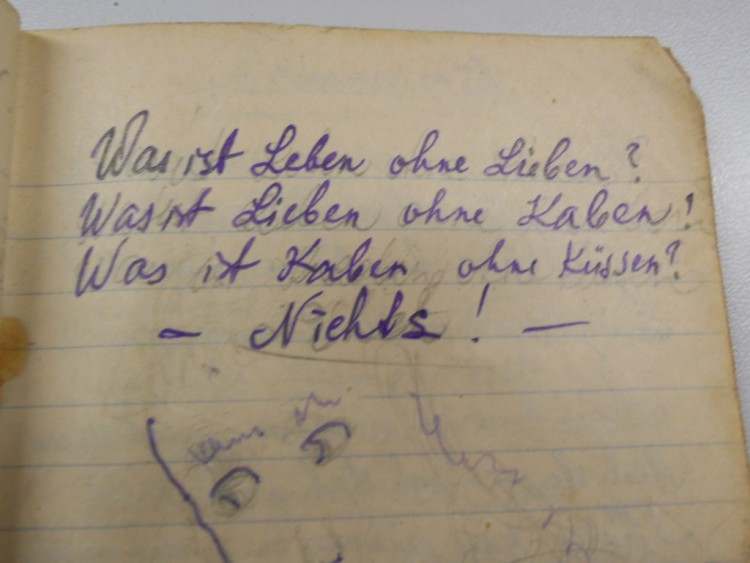 Was ist Leben ohne Lieben?
Was ist Lieben ohne Haben!
Was ist Haben ohne Küssen?
– Nichts! –